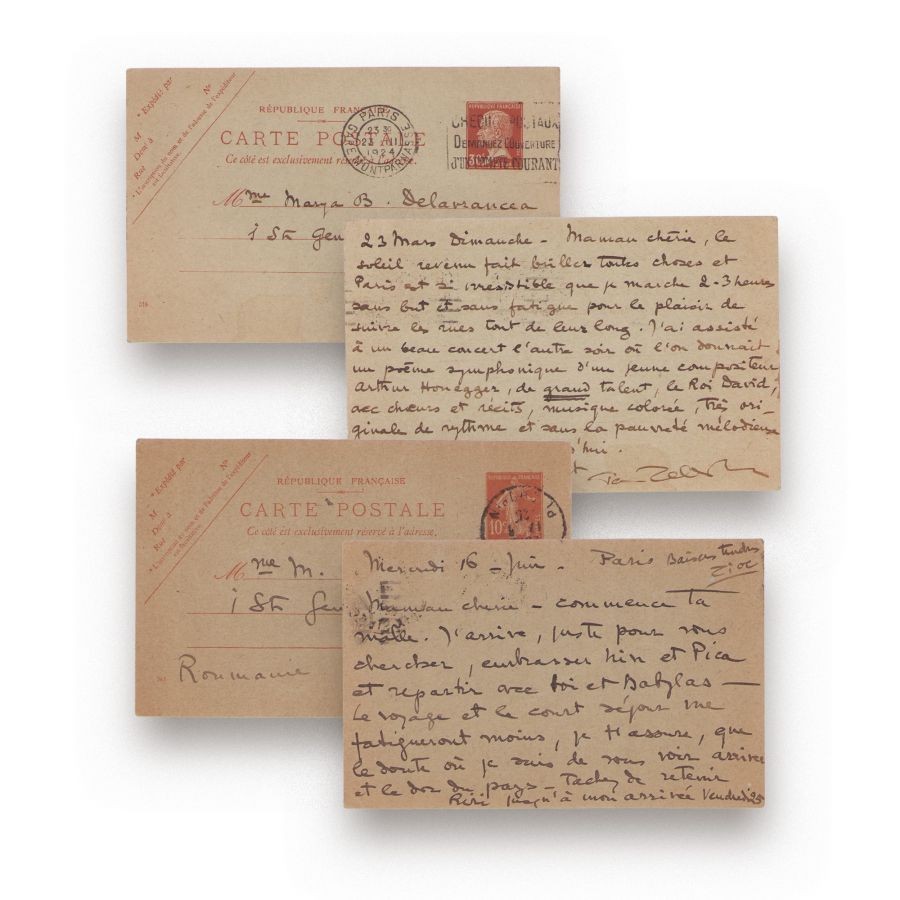 * Expédié par
M
Demt à
Rue
No
* L'inscription du nom et de l'adresse de l'expéditeur
est facultative.
RÉPUBLIQUE FRANÇ
CARTE POSTALE
Ce côté est exclusivement réservé à l'adresse.
PARIS
2330
23 III
1924
GARE MONTPARNASSE
RÉPUBLIQUE FRANÇAISE
CHÈQUES POSTAUX
DEMANDEZ L'OUVERTURE
D'UN COMPTE COURANT
Mme Marya B. Delavrancea
1 Str Gen
23 Mars Dimanche - Maman chérie, le
soleil revenu fait briller toutes choses et
Paris est si irrésistible que je marche 2-3 heures
sans but et sans fatigue pour le plaisir de
suivre les rues tout de leur long. J'ai assisté
à un beau concert l'autre soir où l'on donnait
un poème symphonique d'un jeune compositeur
Arthur Honegger, de grand talent, le Roi David,
avec chœurs et récits, musique colorée, très ori-
ginale de rythme et sans la pauvreté mélodieuse
d'hui.
t
* Expédié par
M
Demt à
Rue
No
* L'inscription du nom et de l'adresse de l'expéditeur
est facultative.
RÉPUBLIQUE FRANÇAISE
CARTE POSTALE
Ce côté est exclusivement réservé à l'adresse.
10c
Mme M.
1 Str Gen
Roumanie
Mercredi 16 - Juin - Paris Baisers tendres
Maman chérie - commence ta
malle. J'arrive, juste pour vous
chercher, embrasser et Pica
et repartir avec toi et Babylas -
Le voyage et le court séjour me
fatigueront moins, je t'assure, que
le doute où je suis de vous voir arriver
et le dor du pays - Tachez de retenir
Riri jusqu'à mon arrivée Vendredi 25